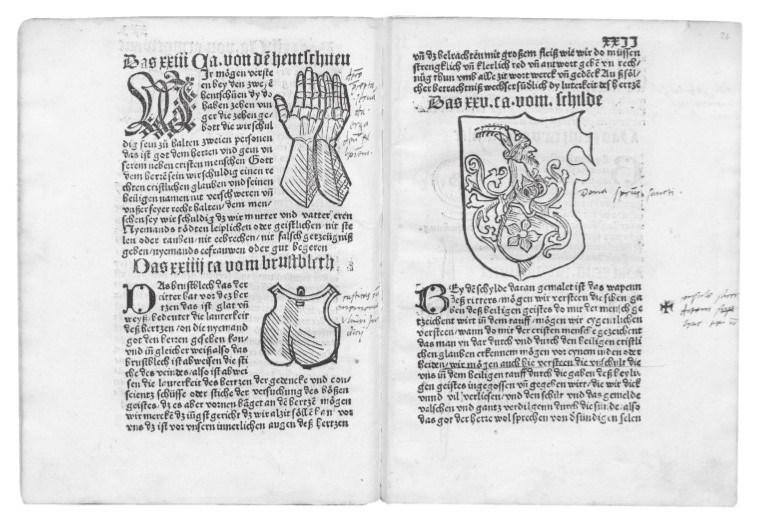 Das xxiii Ca. von dē hentschueu
Ir mögen verste
en bey den zwe¸ē
hentschůen dy do
haben zehen vin
ger die zehen ge/
bott die wir schul
dig sein zů halten zweien personen
das ist got dem herren und gein vn
serem neben cristen menschen Gott
dem herrē sein wir schuldig einen re
chten cristlichen glauben und seinen
heiligen namen nit verschweren vn̄
vnßer feyer recht halten/dem men/
schen sey wir schuldig dz wir mutter und vatter eren
Nyemands tödten leiplichen oder geistlichen nit ste
len oder rauben/nit eebrechen/nit falsch getzeügniß
geben/nyemands eefrauwen oder gut begeren
Das xxiiij ca vom brustblech
DAs brustblech das der
ritter hat vor dez her
tzen das ist glat vn̄
weyß/bedeutet die lauterkeit
deß hertzen/on die nyemand
got den herren gesehen kon/
vnd in̄ gleicher weiß also das
brustblech ist abweisen die sti
che des veindes/also ist abwei
sen die lauterkeit des hertzen der gedencke und con/
scientz schüsse oder stiche der versuchung des bößen
geistes/dz es aber vornen hanget an dē hertzē mögen
wir mercke dz in̄gst gericht dz wir alzit söllē han vor
vns dz ist vor vnsern innerlichen augen deß hertzen
XXII
vn̄ dz betrachten mit großem fleiß wie wir do müssen
strengklich vn̄ klerlich red vn̄ antwort gebē vn̄ rech/
nüg thun vmb alle zit wort werck vn̄ gedēck
cher betrachtniß wechset südlich dy luterkeit des hertzē
Das xxv.ca.vom.schilde
BEy dē schylde daran gemalet ist das wapenn
deß ritters/mögen wir versteen die siben ga
ben deß heiligen geistes do mit der mensch ge
tzeichent wirt in̄ dem tauff/mögen wir eygentlichen
versteen/wann do mit der cristen mensche gezeichent
das man yn dar durch und durch den heiligen cristli
chen glauben erkennem mögen vor eynem iuden oder
heiden/wir mögen auch hie versteen die vnschult die
vns in̄ dem heiligen tauff durch die gaben deß heyli/
gen geistes ingegossen vn̄ gegeben wirt/die wir dick
vnnd vil verliesen/vnd den schilt vnd das gemelde
valschen und gantz verdilgenn durch die sünde/also
das got der herre wol sprechen von dē sündigen selen